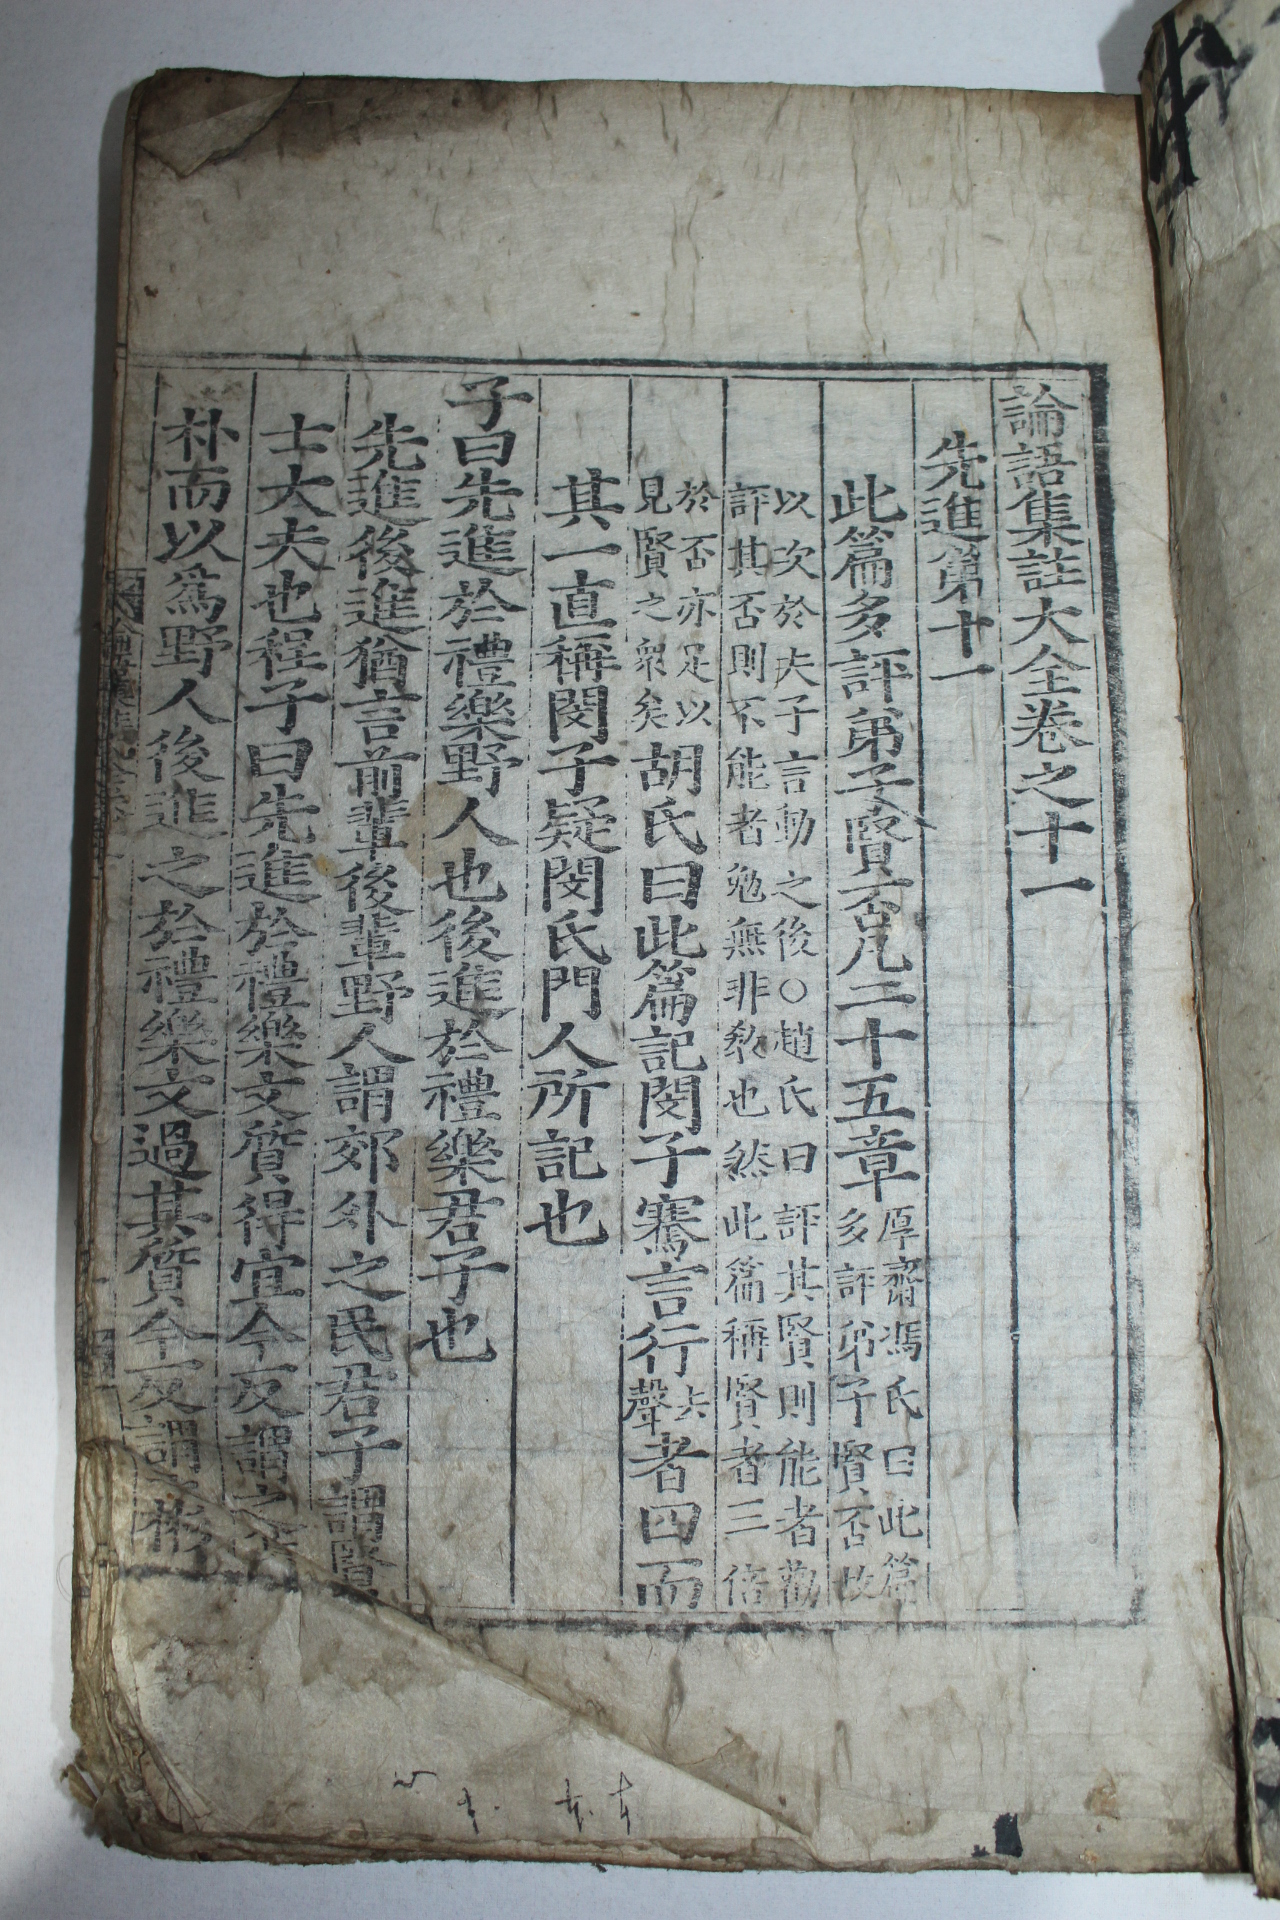 論語集註大全卷之十一
先進第十一
此篇多評弟子賢否凡二十五章
厚齋馮氏曰此篇
多評弟子賢否故
以次於夫子言動之後○趙氏曰評其賢則能者勸
評其否則不能者勉無非敎也然此篇稱賢者三倍
於否亦足以
見賢之衆矣
胡氏曰此篇記閔子騫言行
去
聲
者四而
其一直稱閔子疑閔氏門人所記也
子曰先進於禮樂野人也後進於禮樂君子也
先進後進猶言前輩後輩野人謂郊外之民君子謂賢
士大夫也程子曰先進於禮樂文質得宜今反謂之質
朴而以爲野人後進之於禮樂文過其質今反謂彬